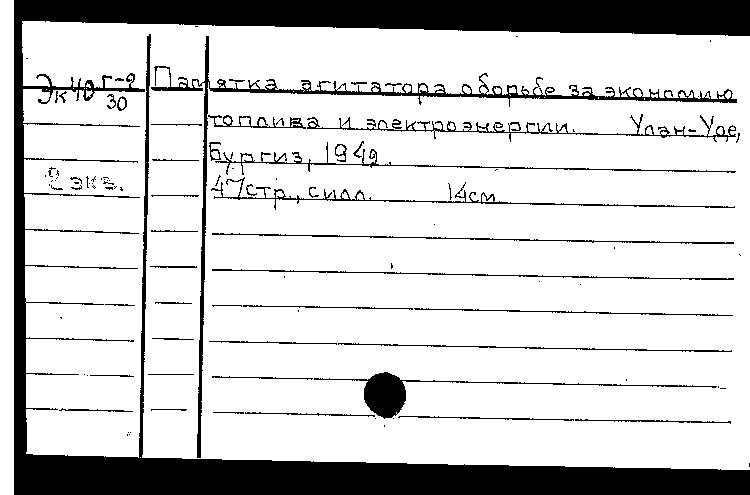 Эк40 Г-2/30 Памятка агитатора о борьбе за экономию
топлива и электроэнергии. Улан-Уде,
Бургиз, 1942.
2 экз. 47стр., силл. 14см